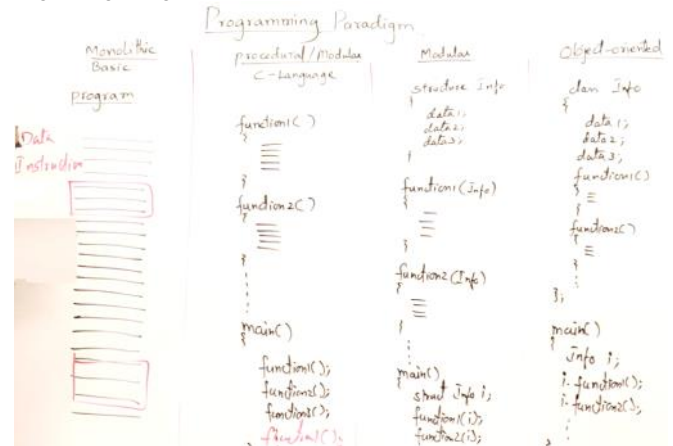 Programming Paradigm
Monolithic
Basic
program
Data
Instruction
procedural/Modular
C-Language
function1( )
{
}
function2( )
{
}
main( )
{
function1( );
function2( );
function3( );
function1( );
}
Modular
structure Info
{
data1;
data2;
data3;
}
function1(Info)
{
}
function2(Info)
{
}
main( )
{
struct Info i;
function1(i);
function2(i);
Object-oriented
class Info
{
data1;
data2;
data3;
function1( )
{
}
function2( )
{
}
};
main( )
{
Info i;
i.function1( );
i.function2( );
}